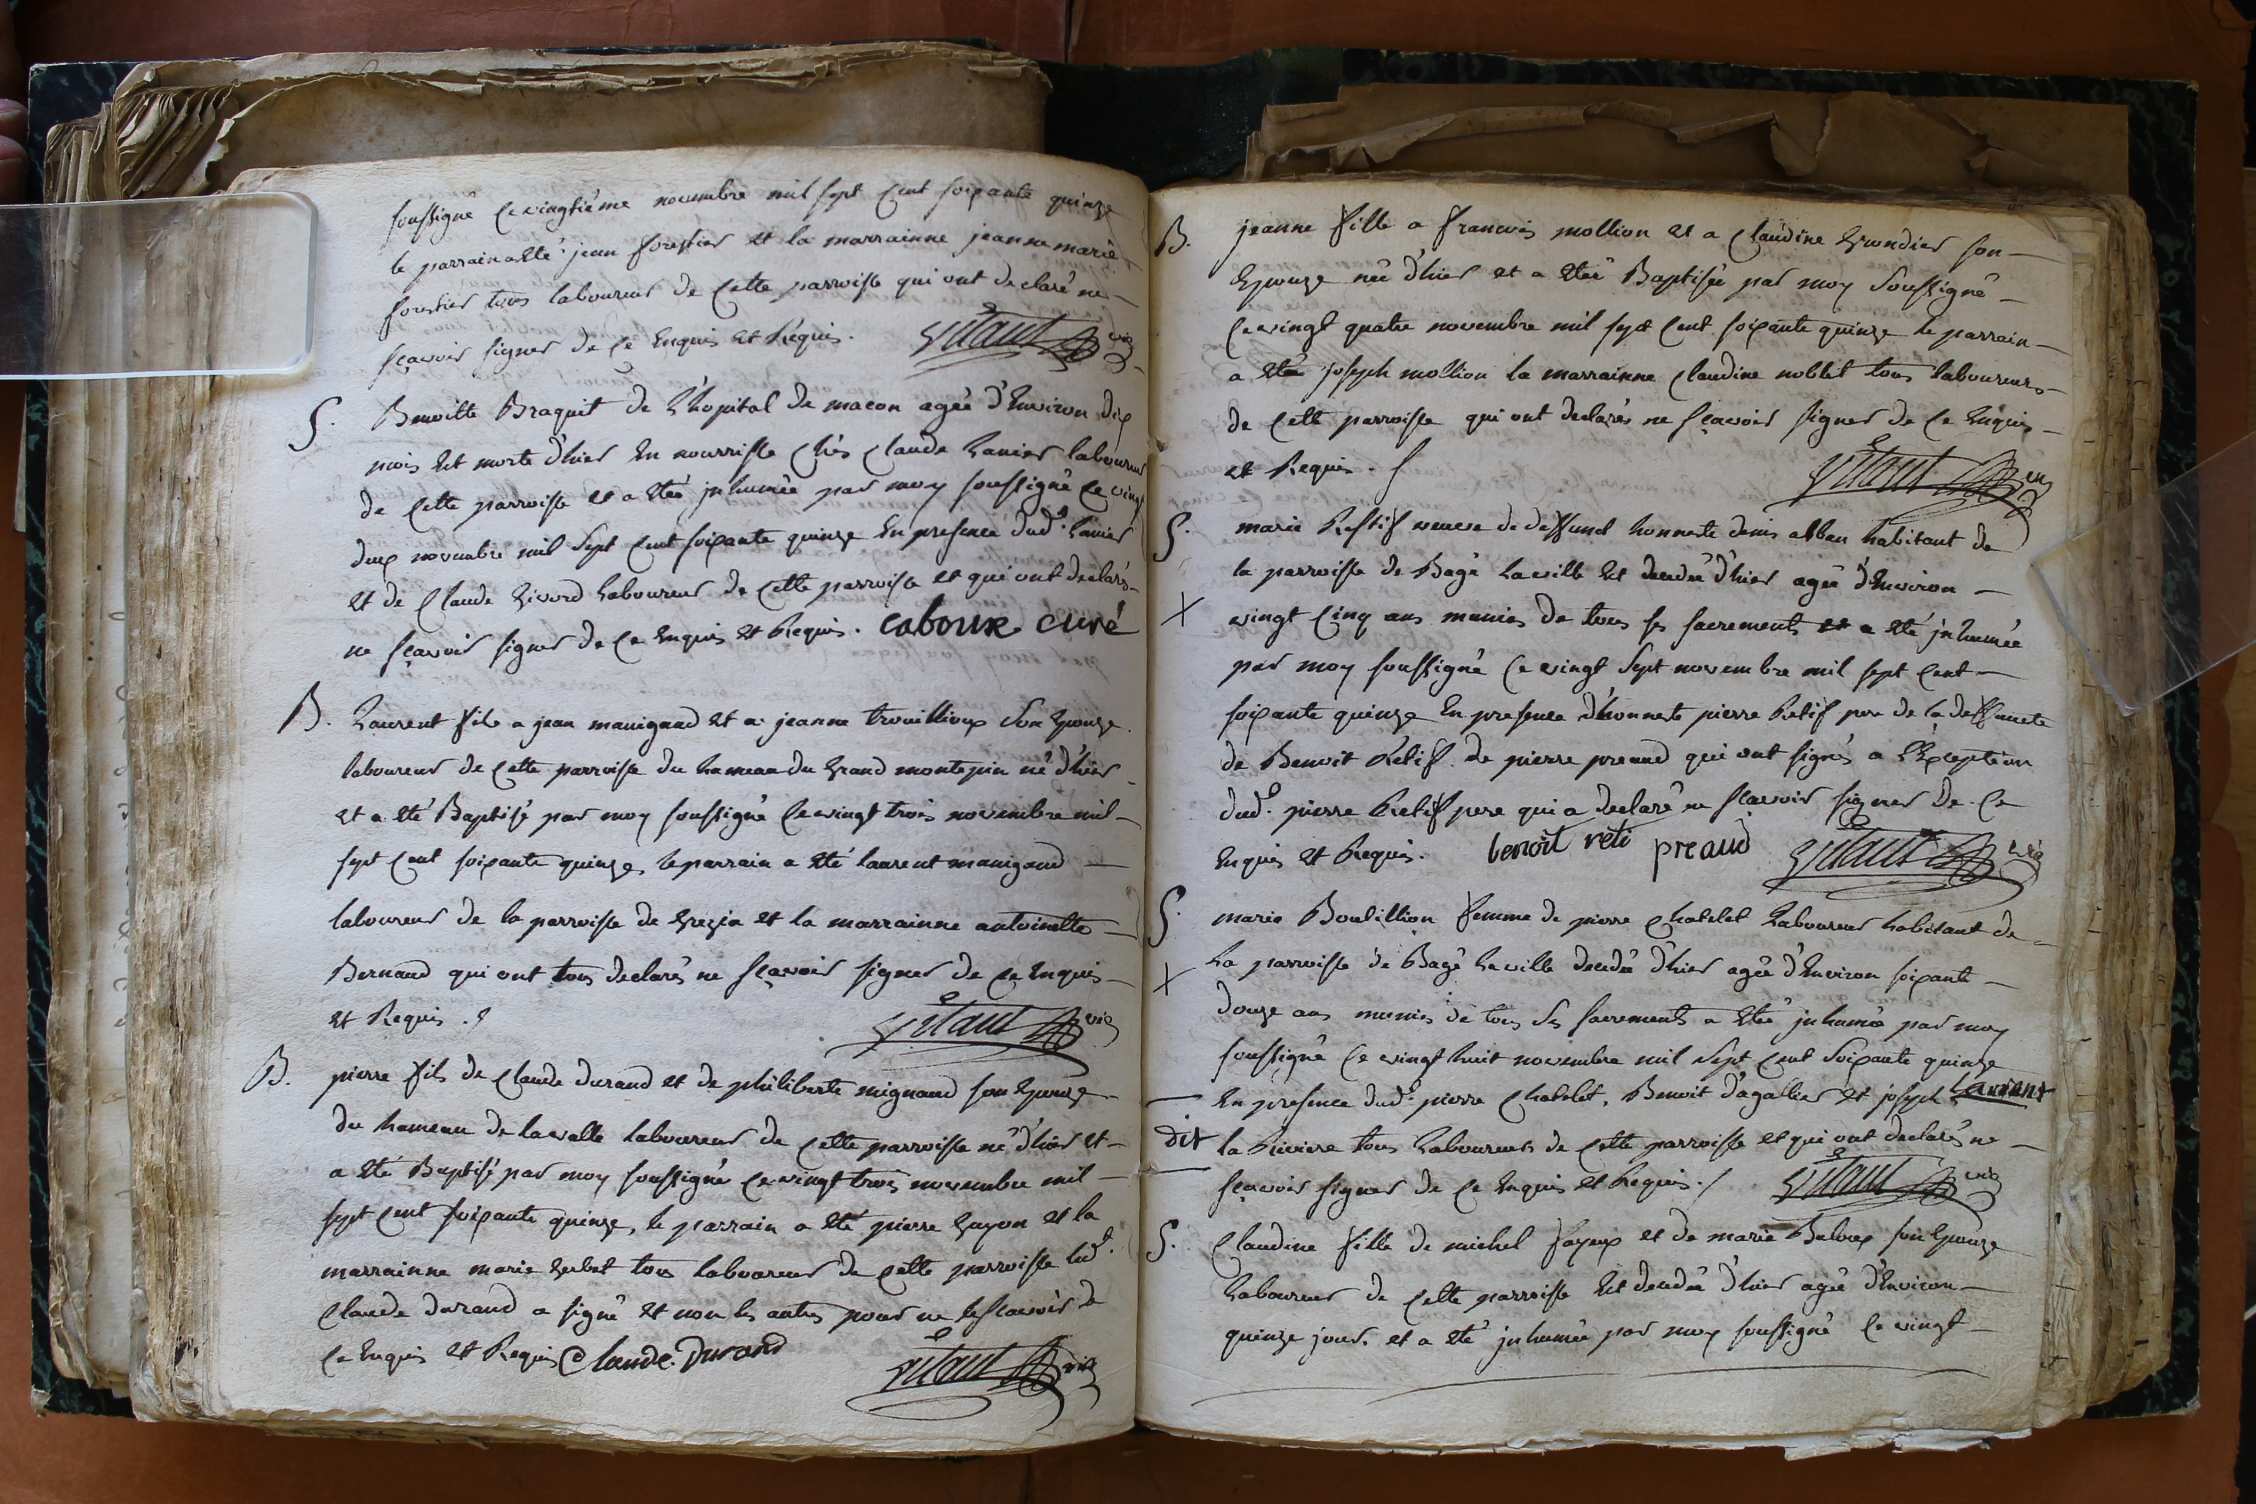 soussigné ce vingtième novembre mil sept cent soixante quinze
le parrain a été jean forestier et la marrainne jeanne marie
forestier tous laboureur de cette parroisse qui ont declaré ne
sçavoir signer de ce enquis et Requis. vitaut vic
S. Benoitte Braquit de l'hopital de macon agée d'Environ dix
mois est morte d'hier En nourrisse chés claude Lanier laboureur
de cette parroisse et a été inhumée par moy soussigné ce vingt
deux novembre mil sept cent soixante quinze En presence dud. Lanier
et de claude Givord Laboureur de cette parroisse et qui ont declarés
ne sçavoir signer de ce enquis et Requis. caboux curé
B. Laurent fils a jean manigaud et a jeanne trouilloux son Epouze
laboureur de cette parroisse du hameau du Grand montepin né d'hier
et a été Baptisé par moy soussigné ce vingt trois novembre mil
sept cent soixante quinze, le parrain a été laurent manigaud
laboureur de la parroisse de et la marrainne antoinette
Bernaud qui ont tous declarés ne sçavoir signer de ce enquis
et Requis. vitaut vic
B. pierre fils de claude durand et de philiberte mignaud son Epouze
du hameau de lavalle laboureur de cette parroisse né d'hier et
a été Baptisé par moy soussigné ce vingt trois novembre mil
sept cent soixante quinze, le parrain a été pierre Guyon et la
marrainne marie Gerbet tous laboureur de cette parroisse led.
claude durand a signé et non les autres pour ne le sçavoir de
ce enquis et Requis Claude. Durand vitaut vic
B. jeanne fille a francois mollion et a claudine Grondier son
Epouze née d'hier et a été Baptisée par moy soussigné
ce vingt quatre novembre mil sept cent soixante quinze le parrain
a été joseph mollion la marrainne claudine noblet tous laboureurs
de cette parroisse qui ont declarés ne sçavoir signer de ce enquis
et Requis. vitaut vic
S. marie Restif veuve de deffunct honneste denis alban habitant de
la parroisse de Bagé la ville est decedée d'hier agée d'Environ
X vingt cinq ans munies de tous ses sacrements et a été inhumée
par moy soussigné ce vingt sept novembre mil sept cent
soixante quinze En presence d'honneste pierre Retif pere de la deffuncte
de Benoit Retif de pierre preaud qui ont signés a l'Exception
dud. pierre Retif pere qui a declaré ne sçavoir signer de ce
enquis et Requis. benoit reti preaud vitaut vic
S. marie Boutillion femme de pierre chatelet Laboureur habitant de
X La parroisse de Bagé la ville decedée d'hier agée d'Environ soixante
douze ans munies de tous ses sacrements a été inhumée par moy
soussigné ce vingt huit novembre mil sept cent soixante quinze
En presence dud. pierre chatelet, Benoit d'agallier et joseph Laurent
dit la Riviere tous Laboureurs de cette parroisse et qui ont declarés ne
sçavoir signer de ce enquis et Requis./ vitaut vic
S. Claudine fille de michel fayoux et de marie Baloux son Epouze
Laboureur de cette parroisse est decedée d'hier agée d'Environ
quinze jours et a été inhumée par moy soussigné ce vingt